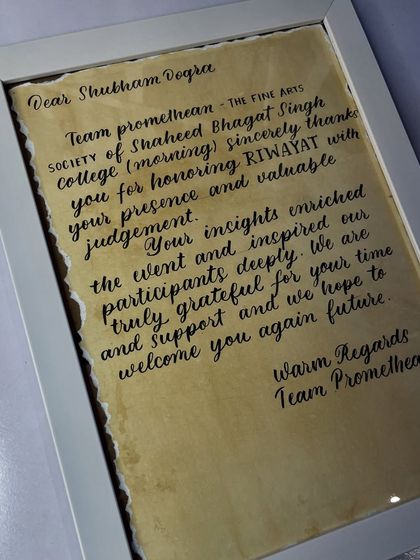 Dear Shubham Dogra
Team promethean - THE FINE ARTS
SOCIETY of Shaheed Bhagat Singh
college (morning) sincerely thanks
you for honoring RIWAYAT with
your presence and valuable
judgement.
Your insights enriched
the event and inspired our
participants deeply. We are
truly grateful for your time
and support and we hope to
welcome you again future.
Warm Regards
Team Promethea